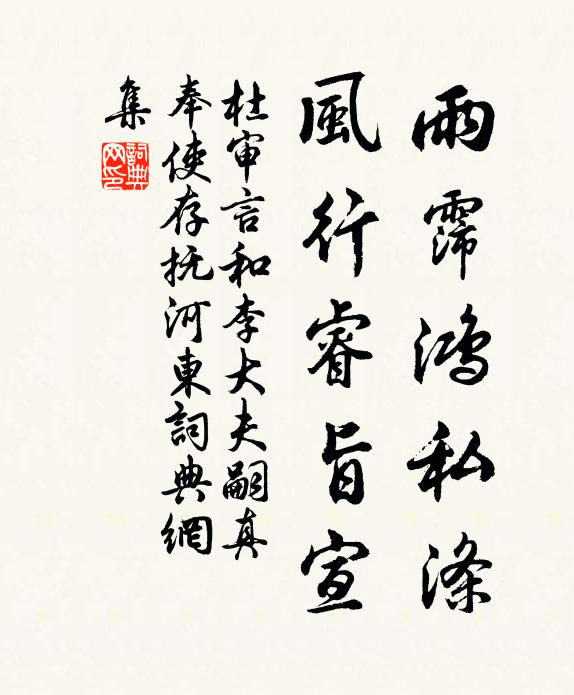 雨霈鸿私涤
風行睿旨宣
杜审言和李大夫嗣真
奉使存抚河東詞典網
集
詞典
网印